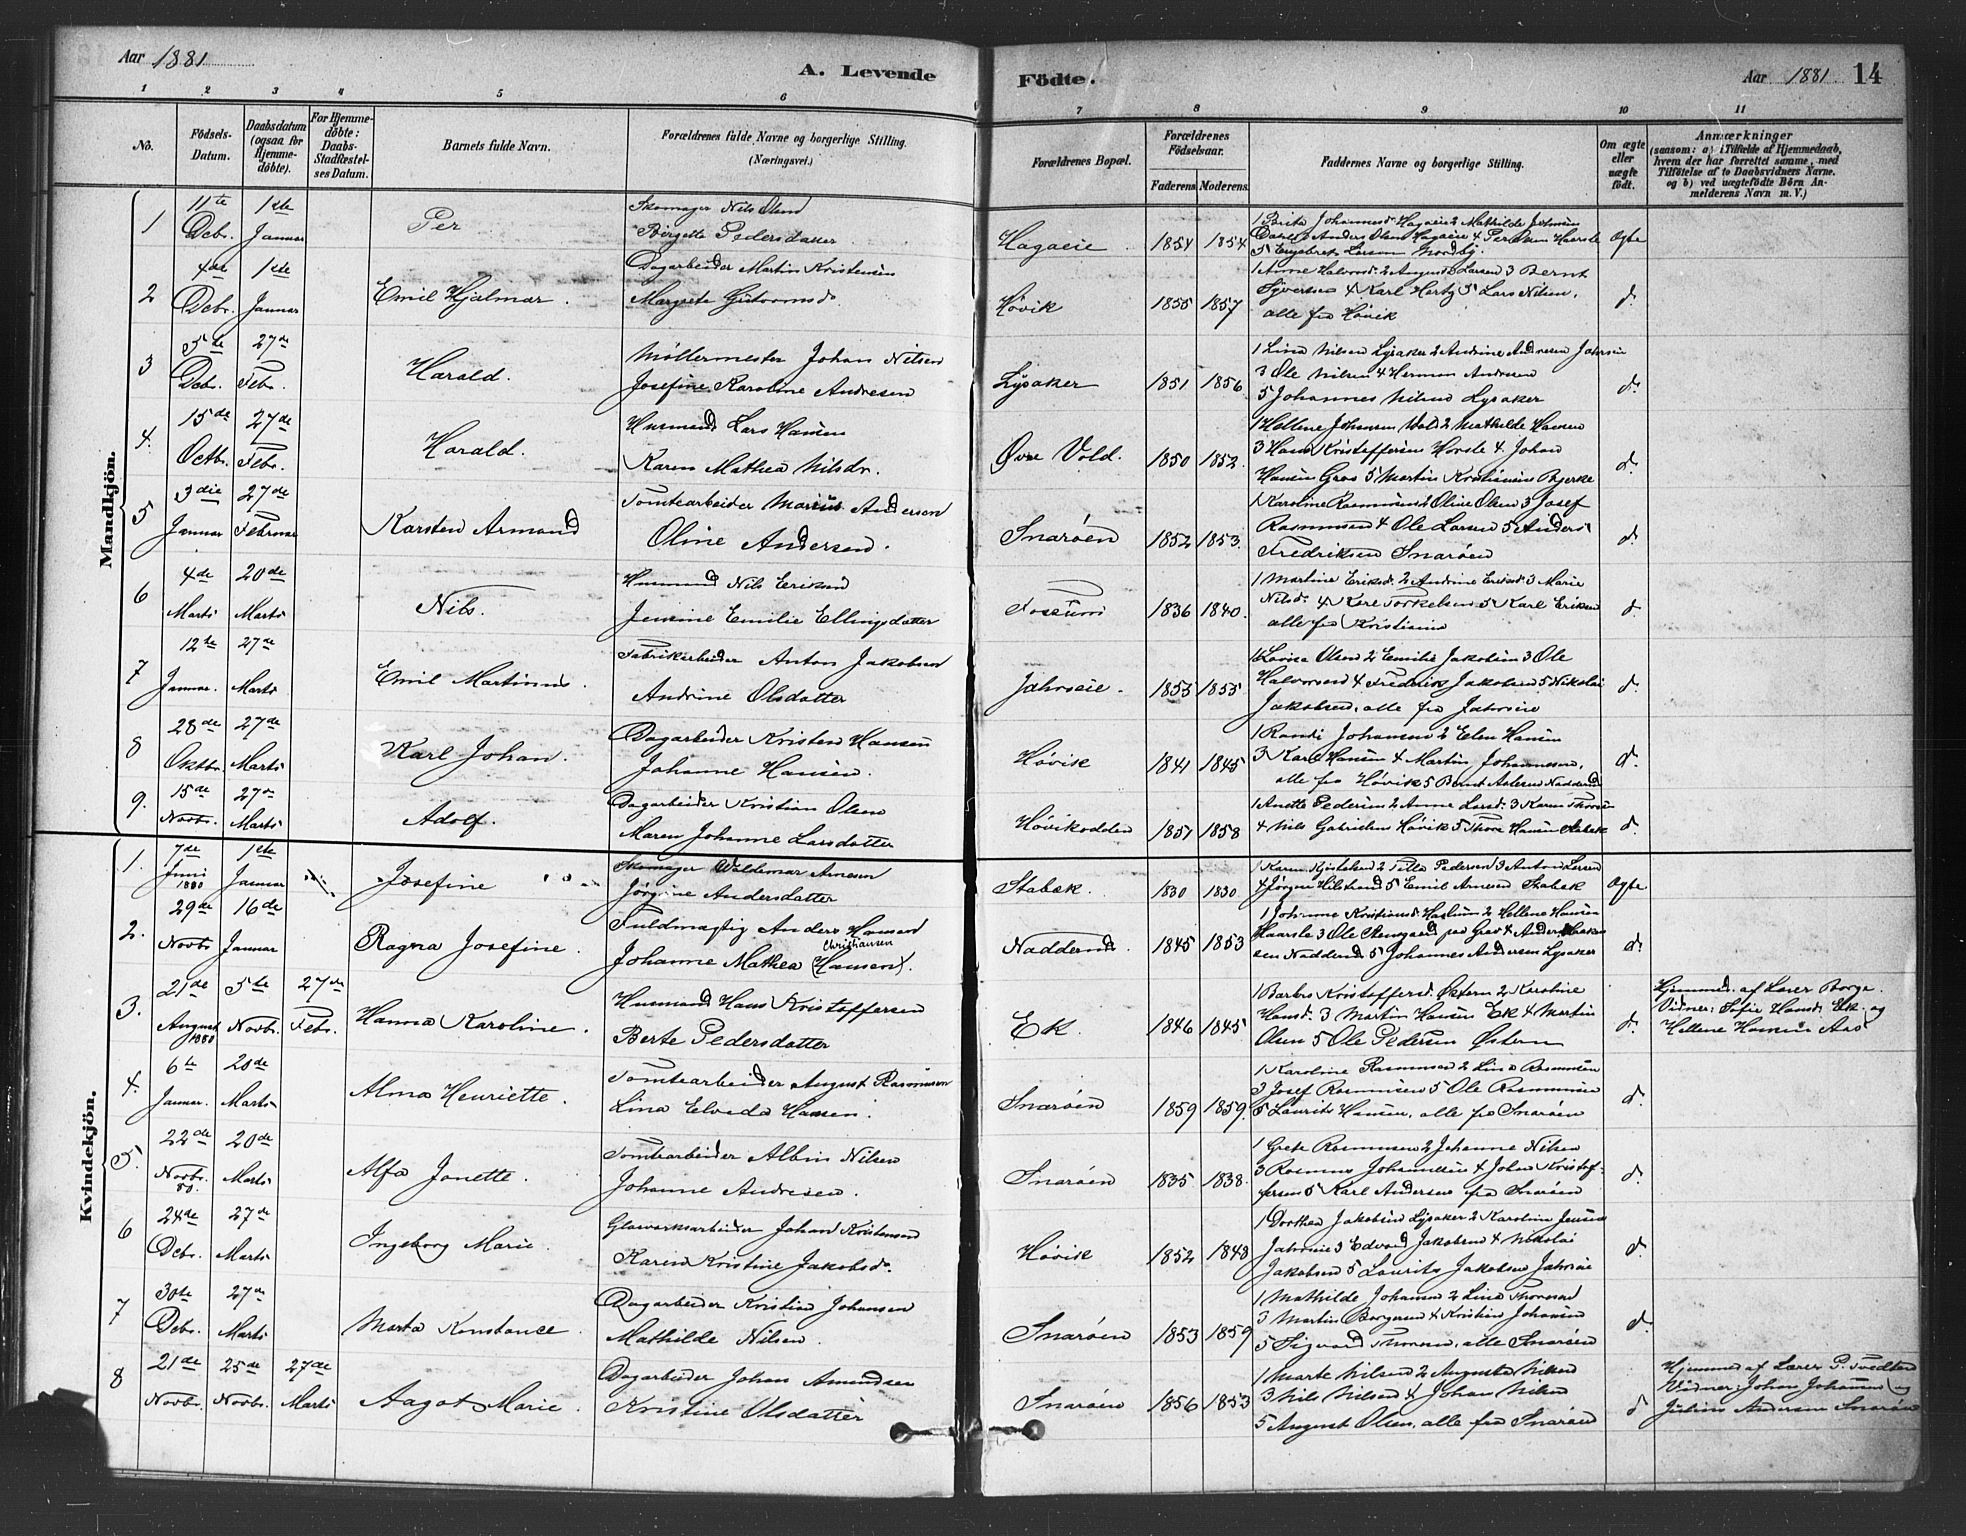 Aar 1881
A. Levende
Födte.
Aar 1881 14
1 2 3 4 5 6 7 8 9 10 11
No.
Födsels-Datum.
Daabsdatum (ogsaa for Hjemmedöbte).
For Hjemmedöbte: Daabs-Stadfæstelses Datum.
Barnets fulde Navn.
Forældrenes fulde Navne og borgerlige Stilling.
(Næringsvei.)
Forældrenes Bopæl.
Forældrenes Födselsaar.
Faderens Moderens
Faddernes Navne og borgerlige Stilling.
Om ægte eller uægte födt.
Anmærkninger
(saasom: a) i Tilfælde af Hjemmedaab,
hvem der har forrettet samme, med
Tilföielse af to Daabsvidners Navne.
og b) ved uægtefödte Börn An-
melderens Navn m. V.)
Mandkjön.
1 11te Decbr. 1ste Januar Per
Skomager Nils Olsen
Birgette Pedersdatter
Hagaeie 1854 1854
1 Berte Johannesd. Hagaeie 2 Mathilde
Anders Olsen Hagaeie 4 Per Olsen Haarsle
5 Engebret Larsen Nordby.
Ægte
2 4de Decbr. 1ste Januar Emil Hjalmar.
Dagarbeider Martin Kristensen
Margrete Guttormsd.
Høvik 1855 1857
1 Anne Halvorsd. 2 August Larsen 3 Bernt
Syversen 4 Karl Hertz 5 Lars Nilsen,
alle fra Høvik
d.
3 5te Decbr. 27de Febr. Harald.
Møllermester Johan Nilsen
Josefine Karoline Andresen
Lysaker 1851 1856
1 Lina Nilsen Lysaker 2 Andrine Andresen
3 Ole Nilsen 4 Herman Andresen
5 Johannes Nilsen Lysaker
d.
4. 15de Octbr. 27de Febr. Harald.
Husmand Lars Hansen
Karen Mathea Nilsdr.
Øvre Vold. 1850 1852.
1 Hellene Johansen Vold 2 Mathilde Hansen
3 Hans Kristoffersen Horsle 4 Johan
Hansen Grav 5 Martin Kristiansen Bjerke
d.
5 3die Januar 27de Februar Karsten Armand
Tomtearbeider Marius Andersen
Oline Andersen.
Snarøen 1852 1853.
1 Karoline Rasmussen 2 Oline Olsen 3 Josef
Rasmussen 4 Ole Larsen 5 Anders
Fredriksen Snarøen
d.
6 4de Marts 20de Marts Nils.
Husmand Nils Eriksen
Jensine Emilie Ellingsdatter
Fossum 1836 1840.
1 Martine Eriksd. 2 Andrine Eriksd. 3 Marie
Nilsd. 4 Kare Torkelsen 5 Karl Eriksen
alle fra Kristiania
d.
7 12te Januar. 27de Marts Emil Martinus.
Fabrikarbeider Anton Jakobsen
Andrine Olsdatter
Jahrseie. 1855 1855
1 Lovise Olsen 2 Emilie Jakobsen 3 Ole
Halvorsen 4 Fredrik Jakobsen 5 Nikolai
Jakobsen, alle fra Jahrseie
d.
8 28de Oktbr. 27de Marts Karl Johan.
Dagarbeider Kristen Hansen
Johanne Hansen.
Høvik 1841 1845
1 Randi Johansen 2 Elen Hansen
3 Karl Hansen 4 Martin Johannesen,
alle fra Høvik 5 Bernt Nadderud
d.
9. 15de Novbr. 27de Marts Adolf.
Dagarbeider Kristian Olsen
Maren Johanne Larsdatter
Høviksdalen 1851 1858
1 Anette Pedersen 2 Anne Larsd. 3 Karen
4 Nils Gabrielsen Høvik 5 Thore Hansen Stabæk
d.
Kvindekjön.
1. 7de Juni 1880 1ste Januar Josefine
Skomager Waldemar Arnesen
Jørgine Andersdatter
Stabæk. 1830 1830
1 Karen 2 Pedersen 3 Anton Larsen
4 Jørgen 5 Emil Arnesen Stabæk
Ægte
2. 29de Novbr 16de Januar Ragna Josefine.
Fuldmægtig Anders Hansen
Christiansen
Johanne Mathea (Hansen).
Nadderud. 1845 1853
1 Johanne Kristiansd. Haslum 2 Hellene Hansen
Haarsle 3 Ole paa Grav 4 Anders
Nadderud 5 Johannes Andersen Lysaker
d.
3. 21de August 1880 5te Novbr. 27de Febr. Hanna Karoline.
Husmand Hans Kristoffersen
Berte Pedersdatter
Ek. 1846 1845
1 Barbro Kristoffersd. Østern 2 Karoline
Hansd. 3 Martin Hansen Ek 4 Martin
Olsen 5 Ole Pedersen Østern
d.
Hjemmed. af Lærer Borge.
Vidner: Sofie Hansd. Ek og
Hellene Hansen Aas
4. 6te Januar. 20de Marts Alma Henriette.
Tomtearbeider August Rasmussen
Lina Elveda Hansen.
Snarøen 1859 1859.
1 Karoline Rasmussen 2 Lina Rasmussen
3 Josef Rasmussen 5 Ole Rasmussen
5 Laurits Hansen, alle fra Snarøen
d.
5. 22de Novbr. 80. 20de Marts Alfa Jonette.
Tomtearbeider Albin Nilsen
Johanne Andresen.
Snarøen 1835 1838.
1 Grete Rasmussen 2 Johanne Nilsen
3 Rasmus Johannesen 4 Johan Kristof-
fersen 5 Karl Andersen fra Snarøen
d.
6 24de Decbr. 27de Marts Ingeborg Marie.
Glasværksarbeider Johan Kristensen
Karen Kristine Jakobsd.
Høvik 1852 1848
1 Dorthea Jakobsen Lysaker 2 Karoline Jensen
Jahrseie 3 Edvard Jakobsen 4 Nikolai
Jakobsen 5 Laurits Jakobsen Jahrseie
d.
7 30te Decbr. 27de Marts Marta Konstance.
Dagarbeider Kristian Johansen
Mathilde Nilsen.
Snarøen 1853 1859
1 Mathilde Johansen 2 Lina Thoresen
3 Martin Borgersen 4 Kristian Johansen
5 Sigvard Thoresen, alle Snarøen
d.
8 21de Novbr. 25de Novbr. 27de Marts Aagot Marie.
Dagarbeider Johan Amundsen
Kristine Olsdatter
Snarøen 1856 1853
1 Marte Nilsen 2 Augusta Nilsen
3 Nils Nilsen 4 Johan Nilsen
5 August Olsen, alle fra Snarøen
d
Hjemmed af Lærer P. Tvedten
Vidner: Johan Johansen og
Julius Andersen Snarøen